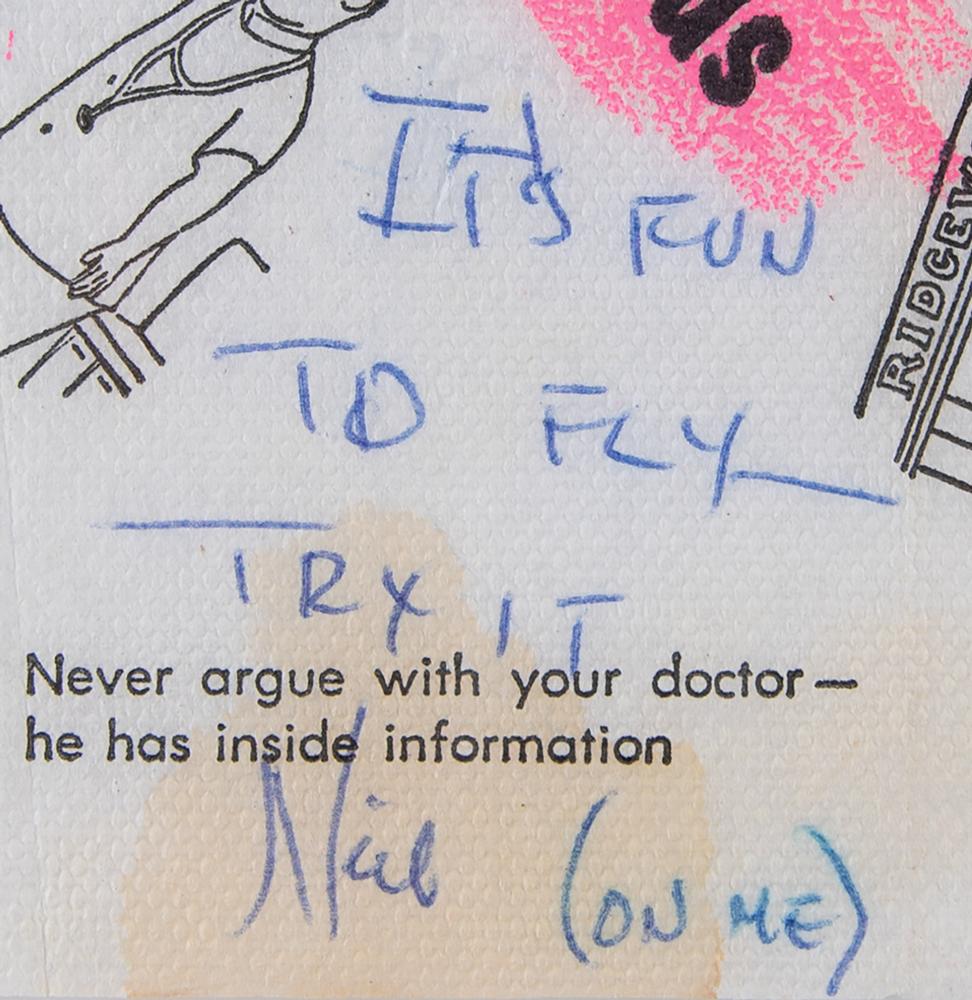 us
ITS FUN
RIDGEW
TO FLY
TRY IT
Never argue with your doctor—
he has inside information
(ON ME)